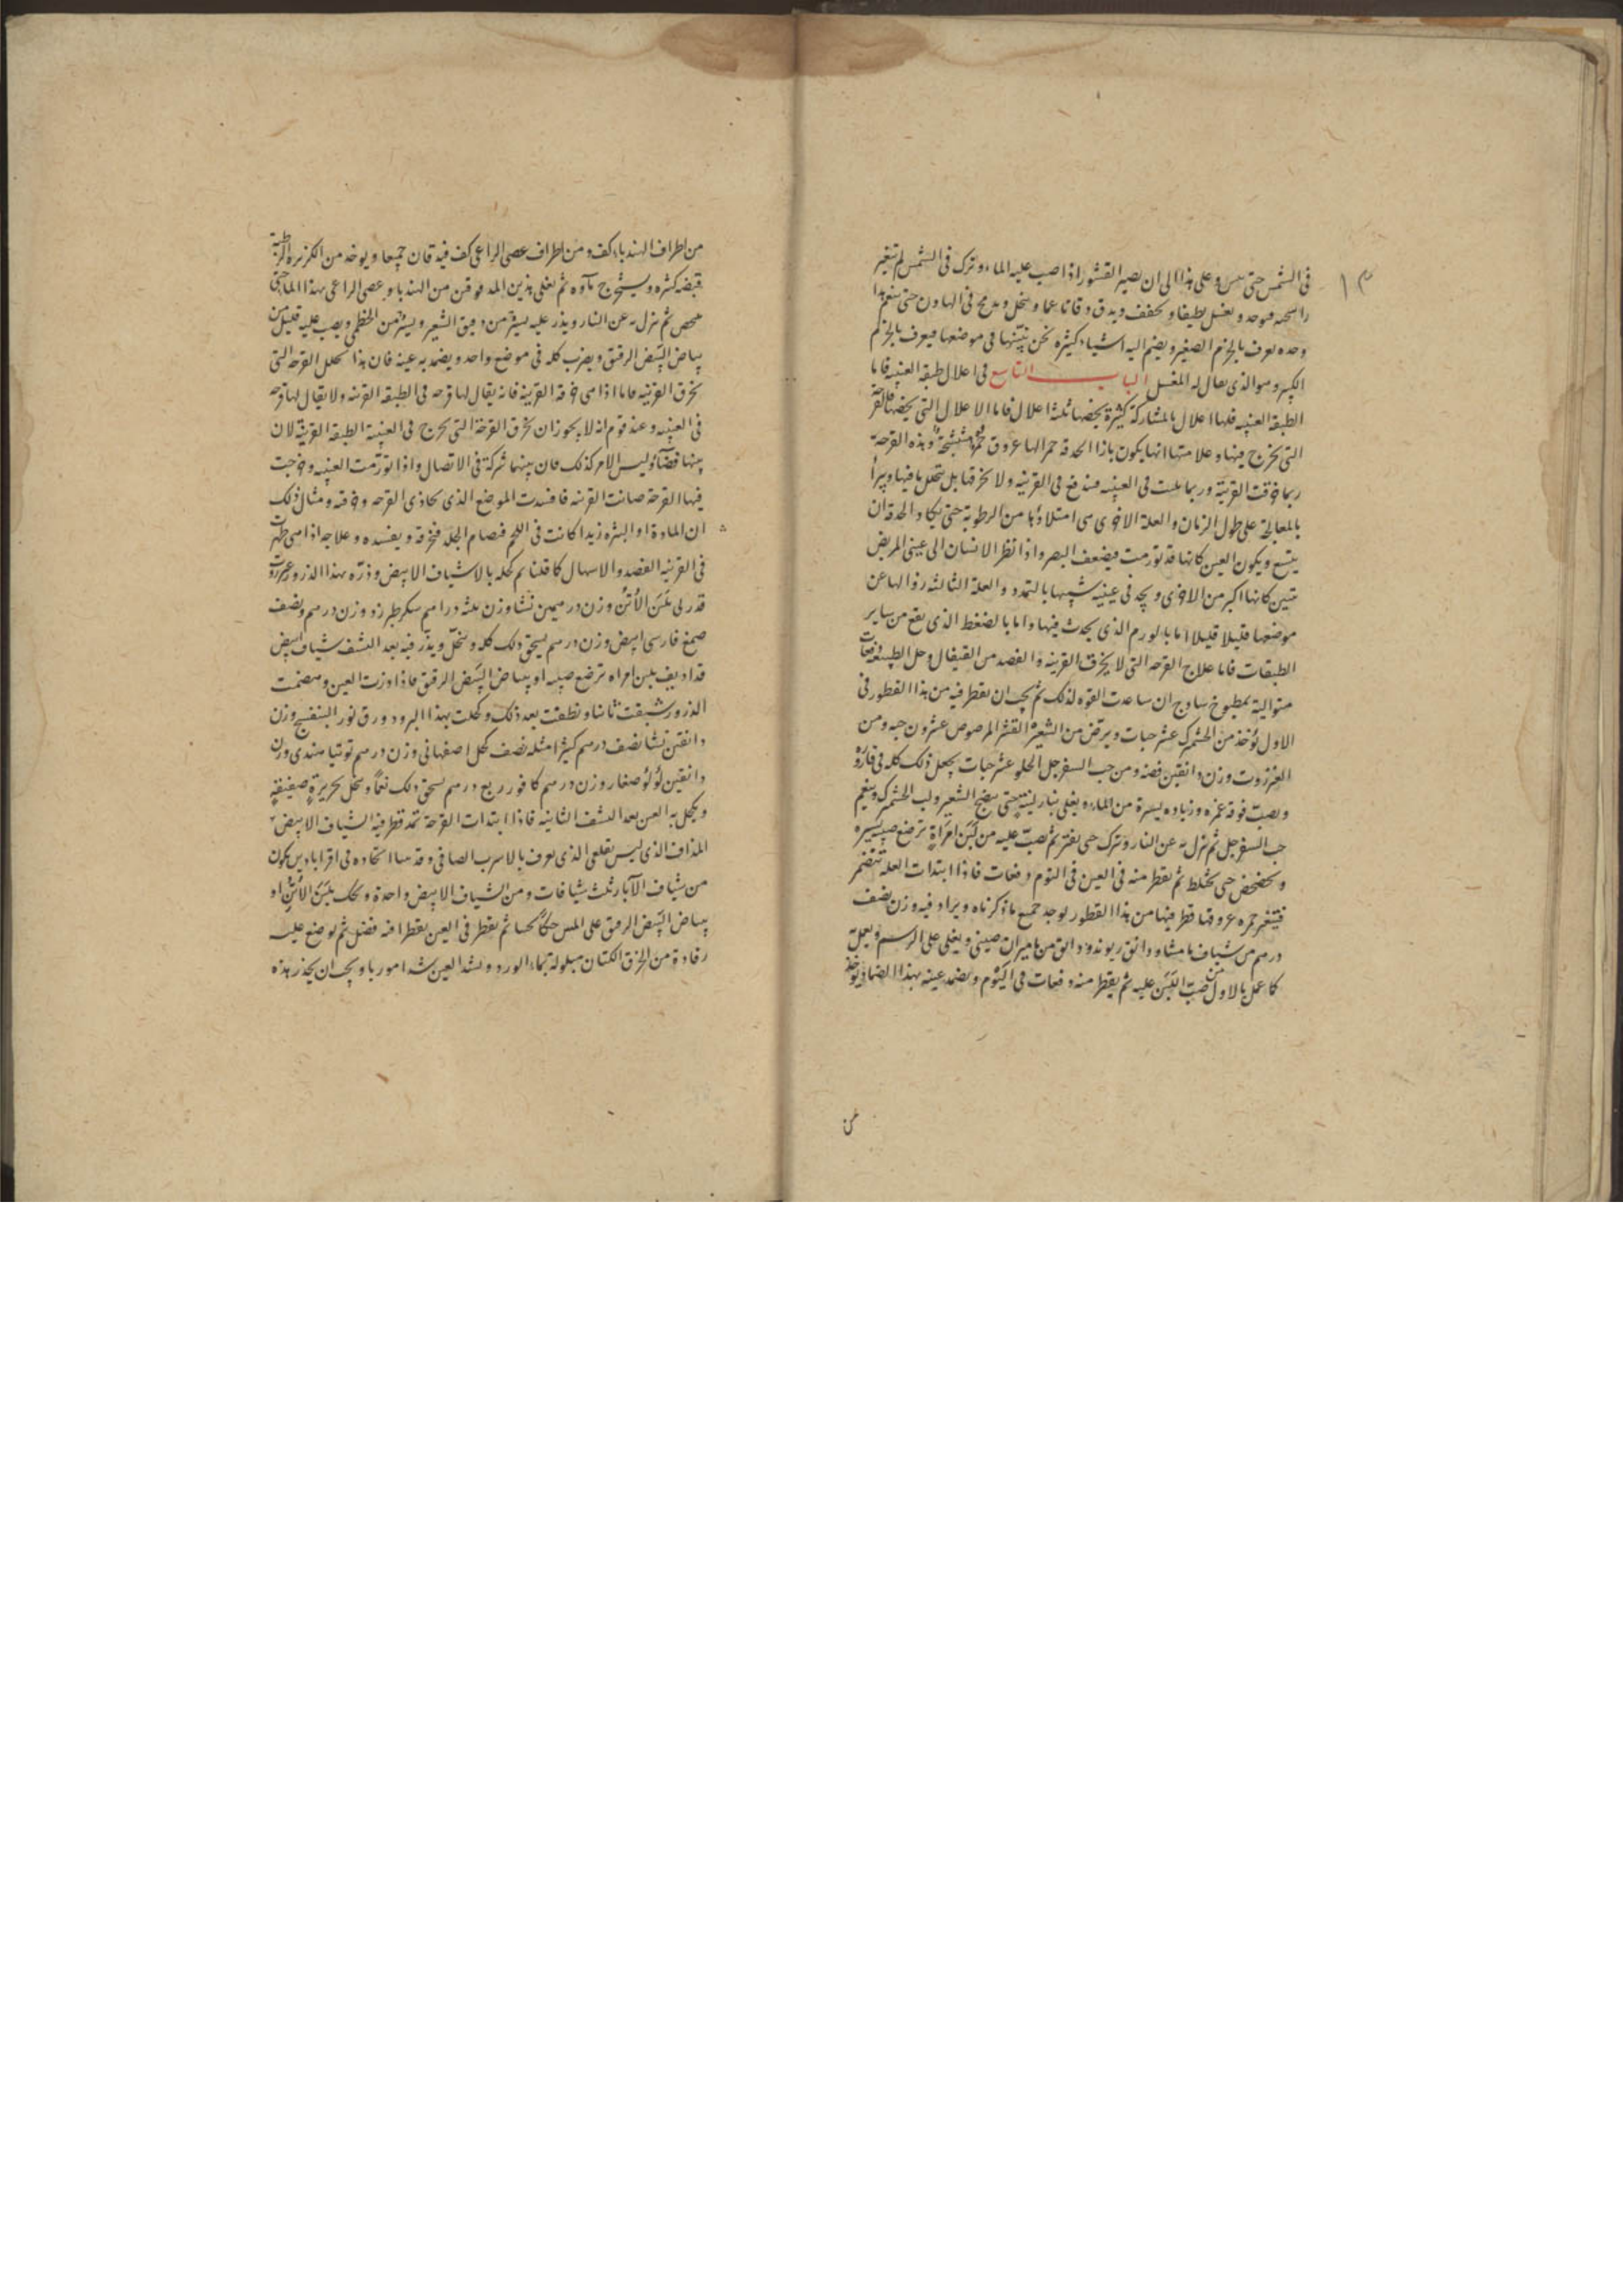 في الشمس حتى وعلى هذا الى ان يصير القشور اذا صب عليه الماء وترك في الشمس لم تتغير
ويغسل لطيفا ويجفف ويدق دقا ناعما وينخل في الهاون حتى ينعم
وحده يعرف بالجرم الصغير ويضم اليه اشياء كثيرة نحن نبينها في موضعها فيعرف بالجرم
الكبير وهو الذي يقال له المغسل الباب التاسع في اعلال طبقة العنبيه فاما
الطبقة العنبيه فلها اعلال بالمشاركة كثيرة يخصها ثلثة اعلال فاما الاعلال التي يخصها فالقرحة
التي تخرج فيها وعلامتها انها يكون بازا الحدقة حمر الها عروق وهذه القرحة
ربما خرقت القرنية وربما في العنبيه في القرنيه ولا تخرقها بل يتحلل ما فيها ويبرأ
بالمعالجة على طول الزمان والعلة الاخرى هي امتلاؤها من الرطوبة حتى يكاد الحدقة ان
يتسع ويكون العين كانها قد تورمت فيضعف البصر واذا نظر الانسان الى عيني المريض
تبين كانها اكبر من الاخرى ويجد في عينيه شبيها بالتمدد والعلة الثالثه زوالها عن
موضعها قليلا قليلا اما بالورم الذي يحدث فيها واما بالضغط الذي يقع من ساير
الطبقات فاما علاج القرحه التي لا يخرق القرنيه فالفصد من القيفال وحل الطبيعة دفعات
متوالية بمطبوخ ساذج ان ساعدت القوه لذلك ثم يجب ان يقطر فيه من هذا القطور في
الاول يؤخذ من الجشمرك عشر حبات ويرض من الشعير القشر المرصوص عشرون حبه ومن
العنزروت وزن دانقين فضه ومن حب السفرجل الحلو عشر حبات يجعل ذلك كله في قارورة
ويصب فوقه غمره وزياده يسيرة من الماء ويغلى بنار لينه حتى ينضج الشعير ولب الجشمرك وينعم
حب السفرجل ثم ينزل به عن النار ويترك حتى يفتر ثم يصب عليه من لبن امراة ترضع صبيه يسيره
ويخضخض حتى يختلط ثم يقطر منه في العين في اليوم دفعات فاذا ابتدات العلة تنضمر
فيتغير حمره عروقها قطر فيها من هذا القطور يوخذ جميع ما ذكرناه ويزاد فيه وزن نصف
درهم من شياف ماميثا ودانق ريوند ودانق من ماميران صيني ويغلى على الرسم ويعمل
كما عمل بالاول من صب اللبن عليه ثم يقطر منه دفعات في اليوم ويضمد عينه بهذا الضماد يوخذ
من
من اطراف الهندباء كف ومن اطراف عصى الراعي كف فيدقان جميعا ويوخذ من الكزبرة الرطبة
قبضه كثيره ويستخرج ماؤه ثم يغلى هذين المدقوقين من الهندبا وعصى الراعي بهذا الما حتى
ثم ينزل به عن النار ويذر عليه يسير من دقيق الشعير ويسير من الخطمي ويصب عليه قليل من
بياض البيض الرقيق ويضرب كله في موضع واحد ويضمد به عينه فان هذا يحلل القرحة التي
تخرق القرنيه فاما اذا هي خرقة القرنية فانه يقال لها قرحه في الطبقة القرنيه ولا يقال لها قرحه
في العنبيه وعند قوم انه لا يجوز ان يخرق القرحة التي تخرج في العنبية الطبقة القرنية لان
بينها فضآء وليس الامر كذلك فان بينهما شركة في الاتصال واذا تورمت العنبيه وخرجت
فيها القرحة صانت القرنيه فافسدت الموضع الذي يحاذي القرحه وخرقه ومثال ذلك
ان المادة او البثره زيدا كانت في اللحم فصام الجلد فتخرقه ويفسده وعلاجه اذا هي ظهرت
في القرنيه الفصد والاسهال كما قلنا ثم كحله بالاشياف الابيض وذره بهذا الذرور عنزروت
قد ربي بلبن الأتن وزن درهمين نشا وزن ثلثه دراهم سكر طبرزد وزن درهم ونصف
صمغ فارسي ابيض وزن درهم يسحق ذلك كله وينخل ويذر فيه بعد الشف شياف ابيض
قد اديف بلبن امراه ترضع صبيه او ببياض البيض الرقيق فاذا وزرت العين
الذرور شيفت ثانيا ونظفت بعد ذلك وكحلت بهذا البرود ورق نور البنفسج وزن
دانقين نشا نصف درهم كثيرا مثله نصف كحل اصفهاني وزن درهم توتيا هندي وزن
دانقين لؤلؤ صغار وزن درهم كافور ربع درهم يسحق ذلك نعما وينخل بحريرة صفيقة
ويكحل به العين بعد الشف الثانيه فاذا ابتدات القرحة تمد قطر فيه الشياف الابيض
المذاف الذي ليس بقلعي الذي يعرف بالاسرب الصافي وقد بينا اتخاده في اقراباديس يكون
من شياف الآبار ثلث شيافات ومن الشياف الابيض واحدة ويحك بلبن الأتن او
ببياض البيض الرقيق على المسن حكا ثم يقطر في العين يقطرا فيه فضل ثم يوضع عليه
رفادة من الخرق الكتان مبلولة بماء الورد ويشد العين شدا ويجب ان يحذر هذه